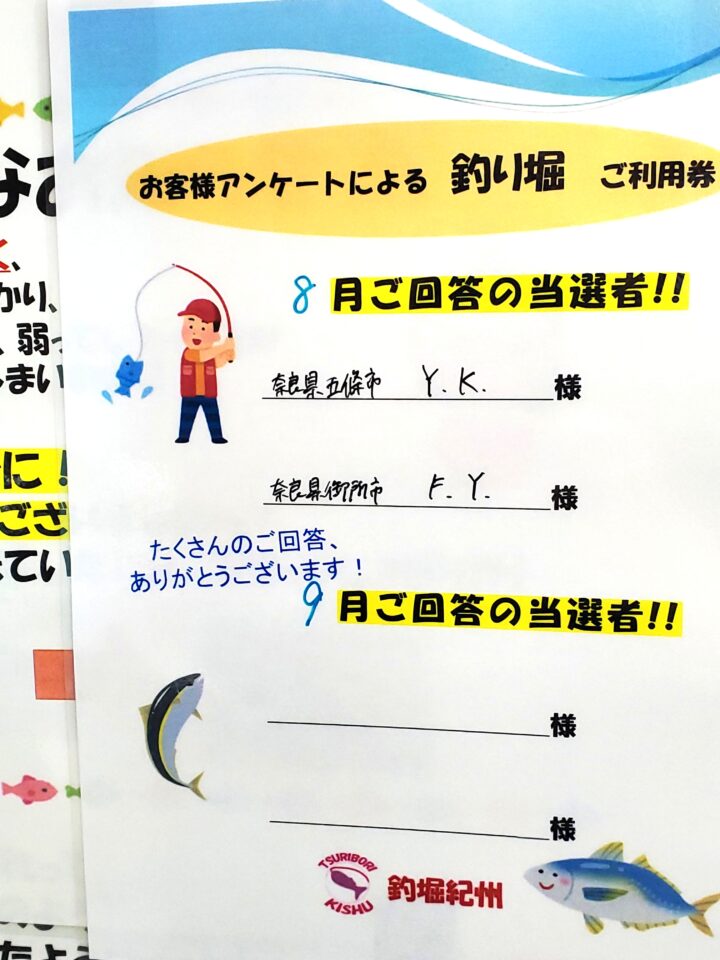 お客様アンケートによる 釣り堀 ご利用券
8月ご回答の当選者!!
奈良県五條市 Y.K. 様
奈良県御所市 F.Y. 様
たくさんのご回答、
ありがとうございます！
9月ご回答の当選者!!
様
様
TSURIBORI KISHU
釣堀紀州
かり、
、弱
まい
に！
ござ
てい